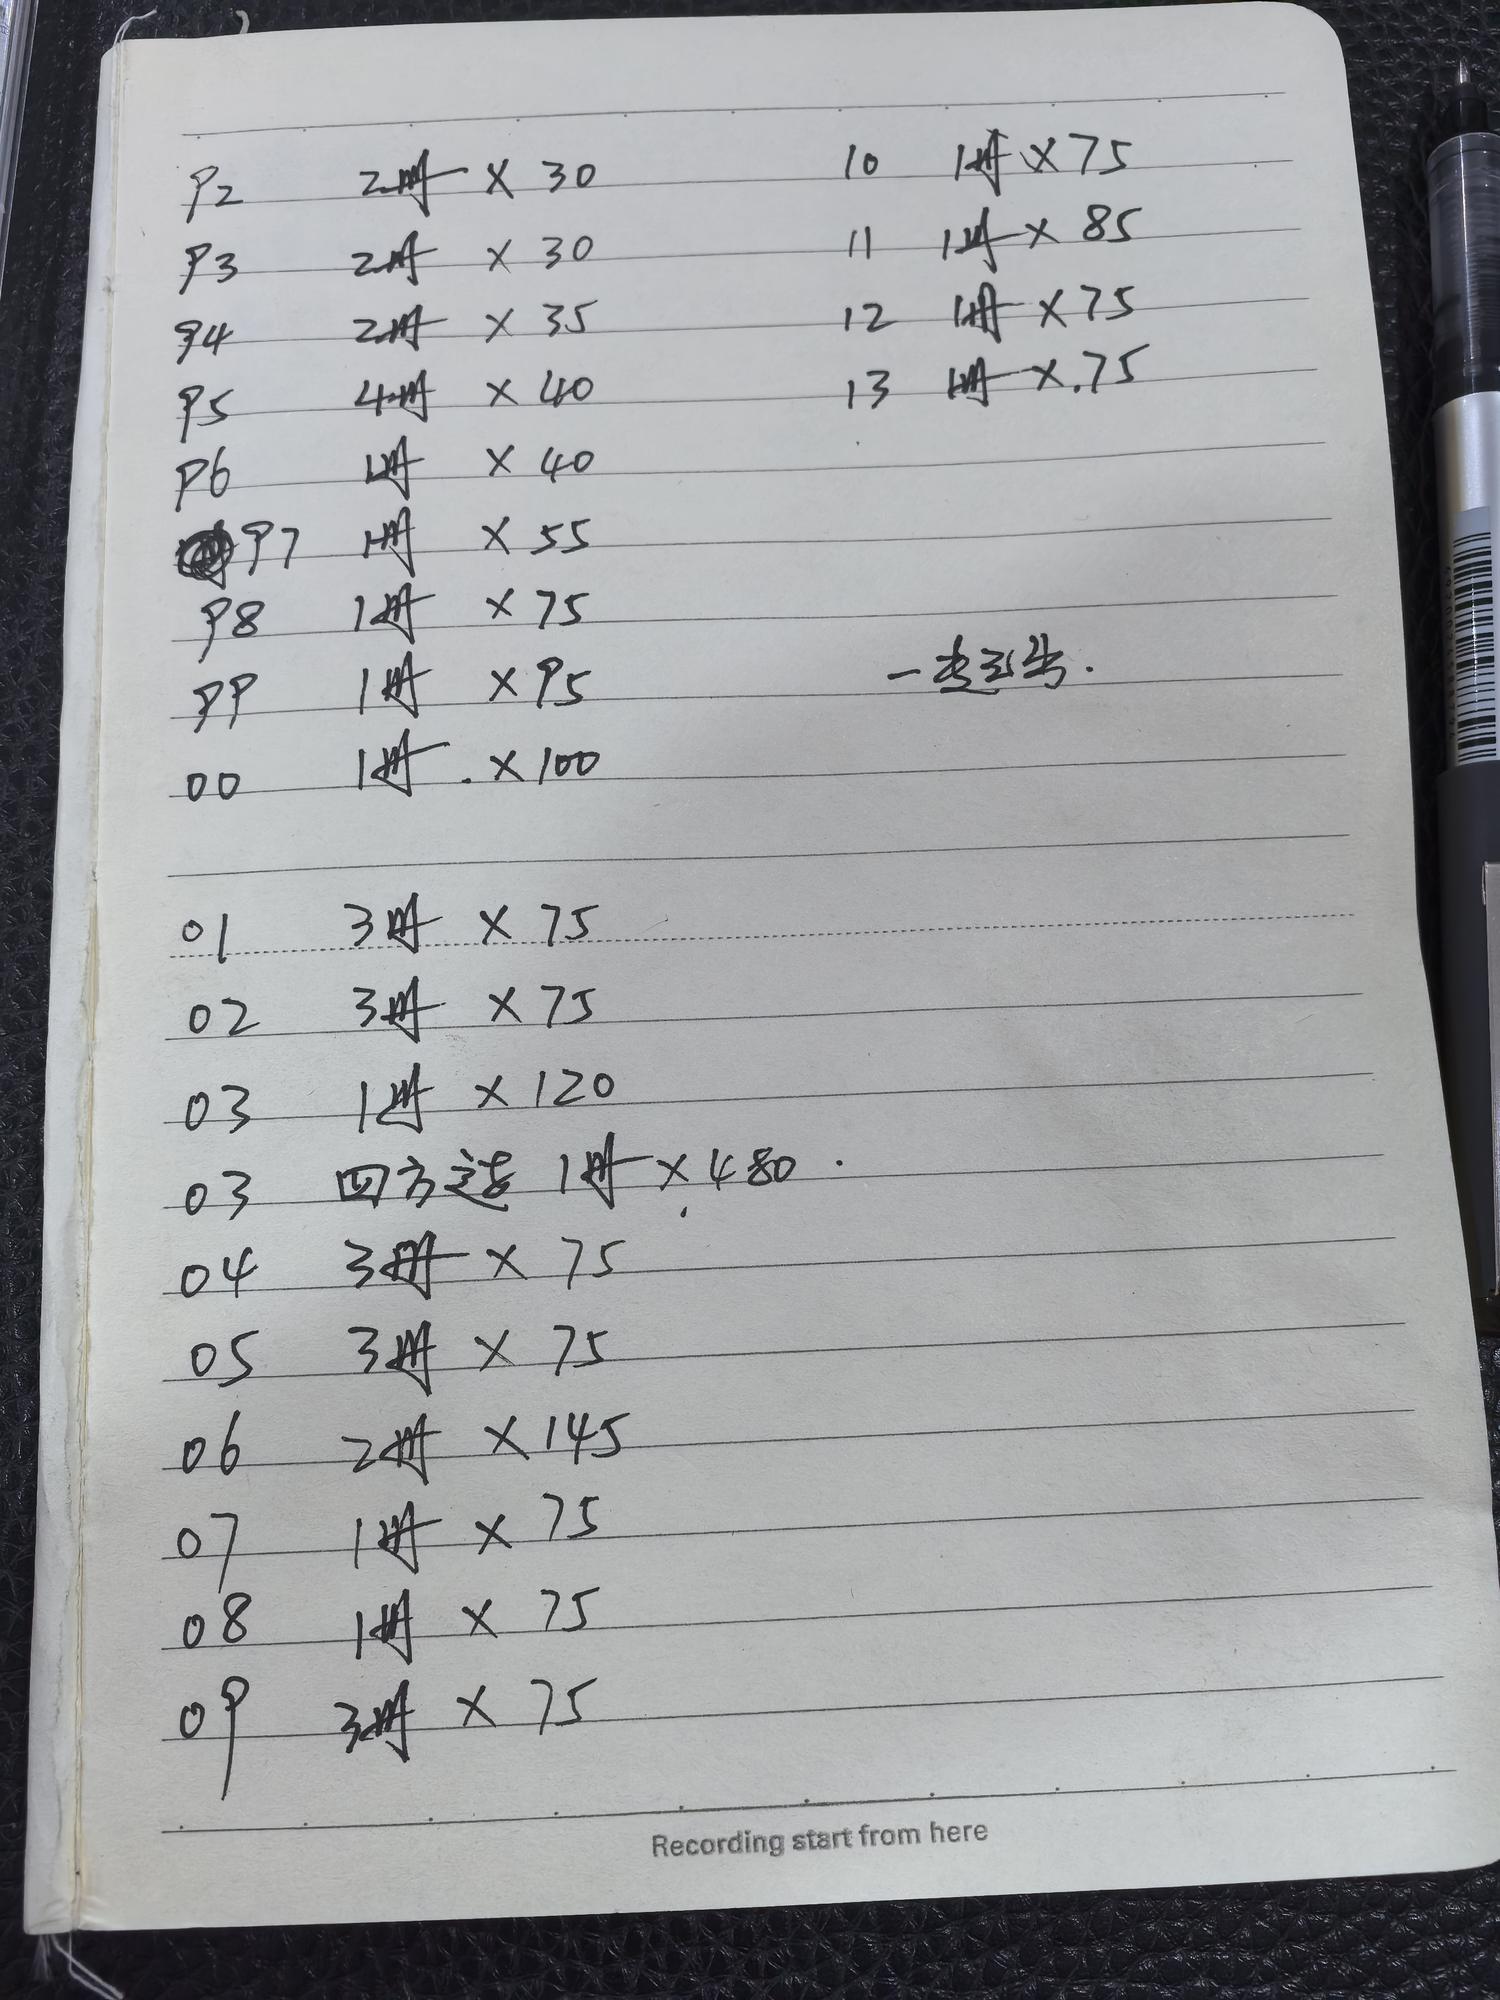 92 2册 × 30
93 2册 × 30
94 2册 × 35
95 4册 × 40
96 1册 × 40
97 1册 × 55
98 1册 × 75
99 1册 × 95
00 1册 × 100
01 3册 × 75
02 3册 × 75
03 1册 × 120
03 四方连 1册 × 480
04 3册 × 75
05 3册 × 75
06 2册 × 145
07 1册 × 75
08 1册 × 75
09 3册 × 75
10 1册 × 75
11 1册 × 85
12 1册 × 75
13 1册 × 75
一走
Recording start from here